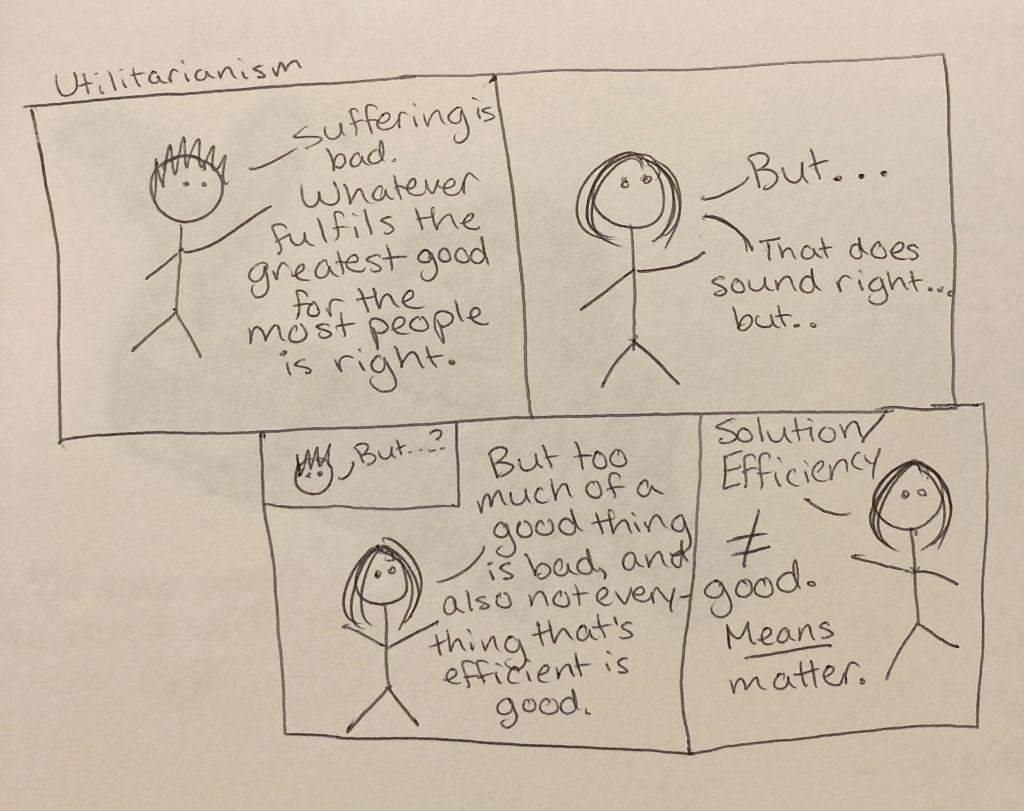 Utilitarianism
Suffering is
bad.
Whatever
fulfils the
greatest good
for the
most people
is right.
But...
That does
sound right...
but..
But...?
But too
much of a
good thing
is bad, and
also not every-
thing that's
efficient is
good.
Solution/
Efficiency
≠
good.
Means
matter.